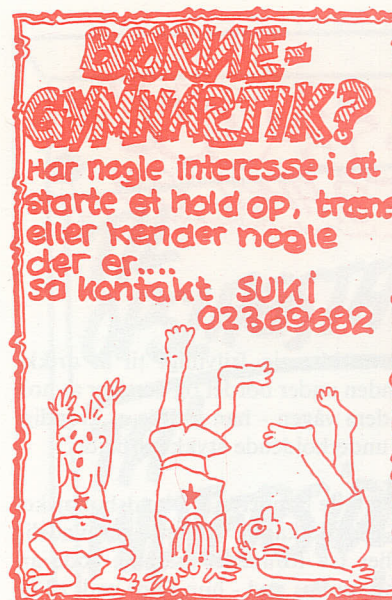 BØRNE-
GYMNARTIK?
Har nogle interesse i at
starte et hold op, træne
eller kender nogle
der er....
så kontakt SUKI
02369682